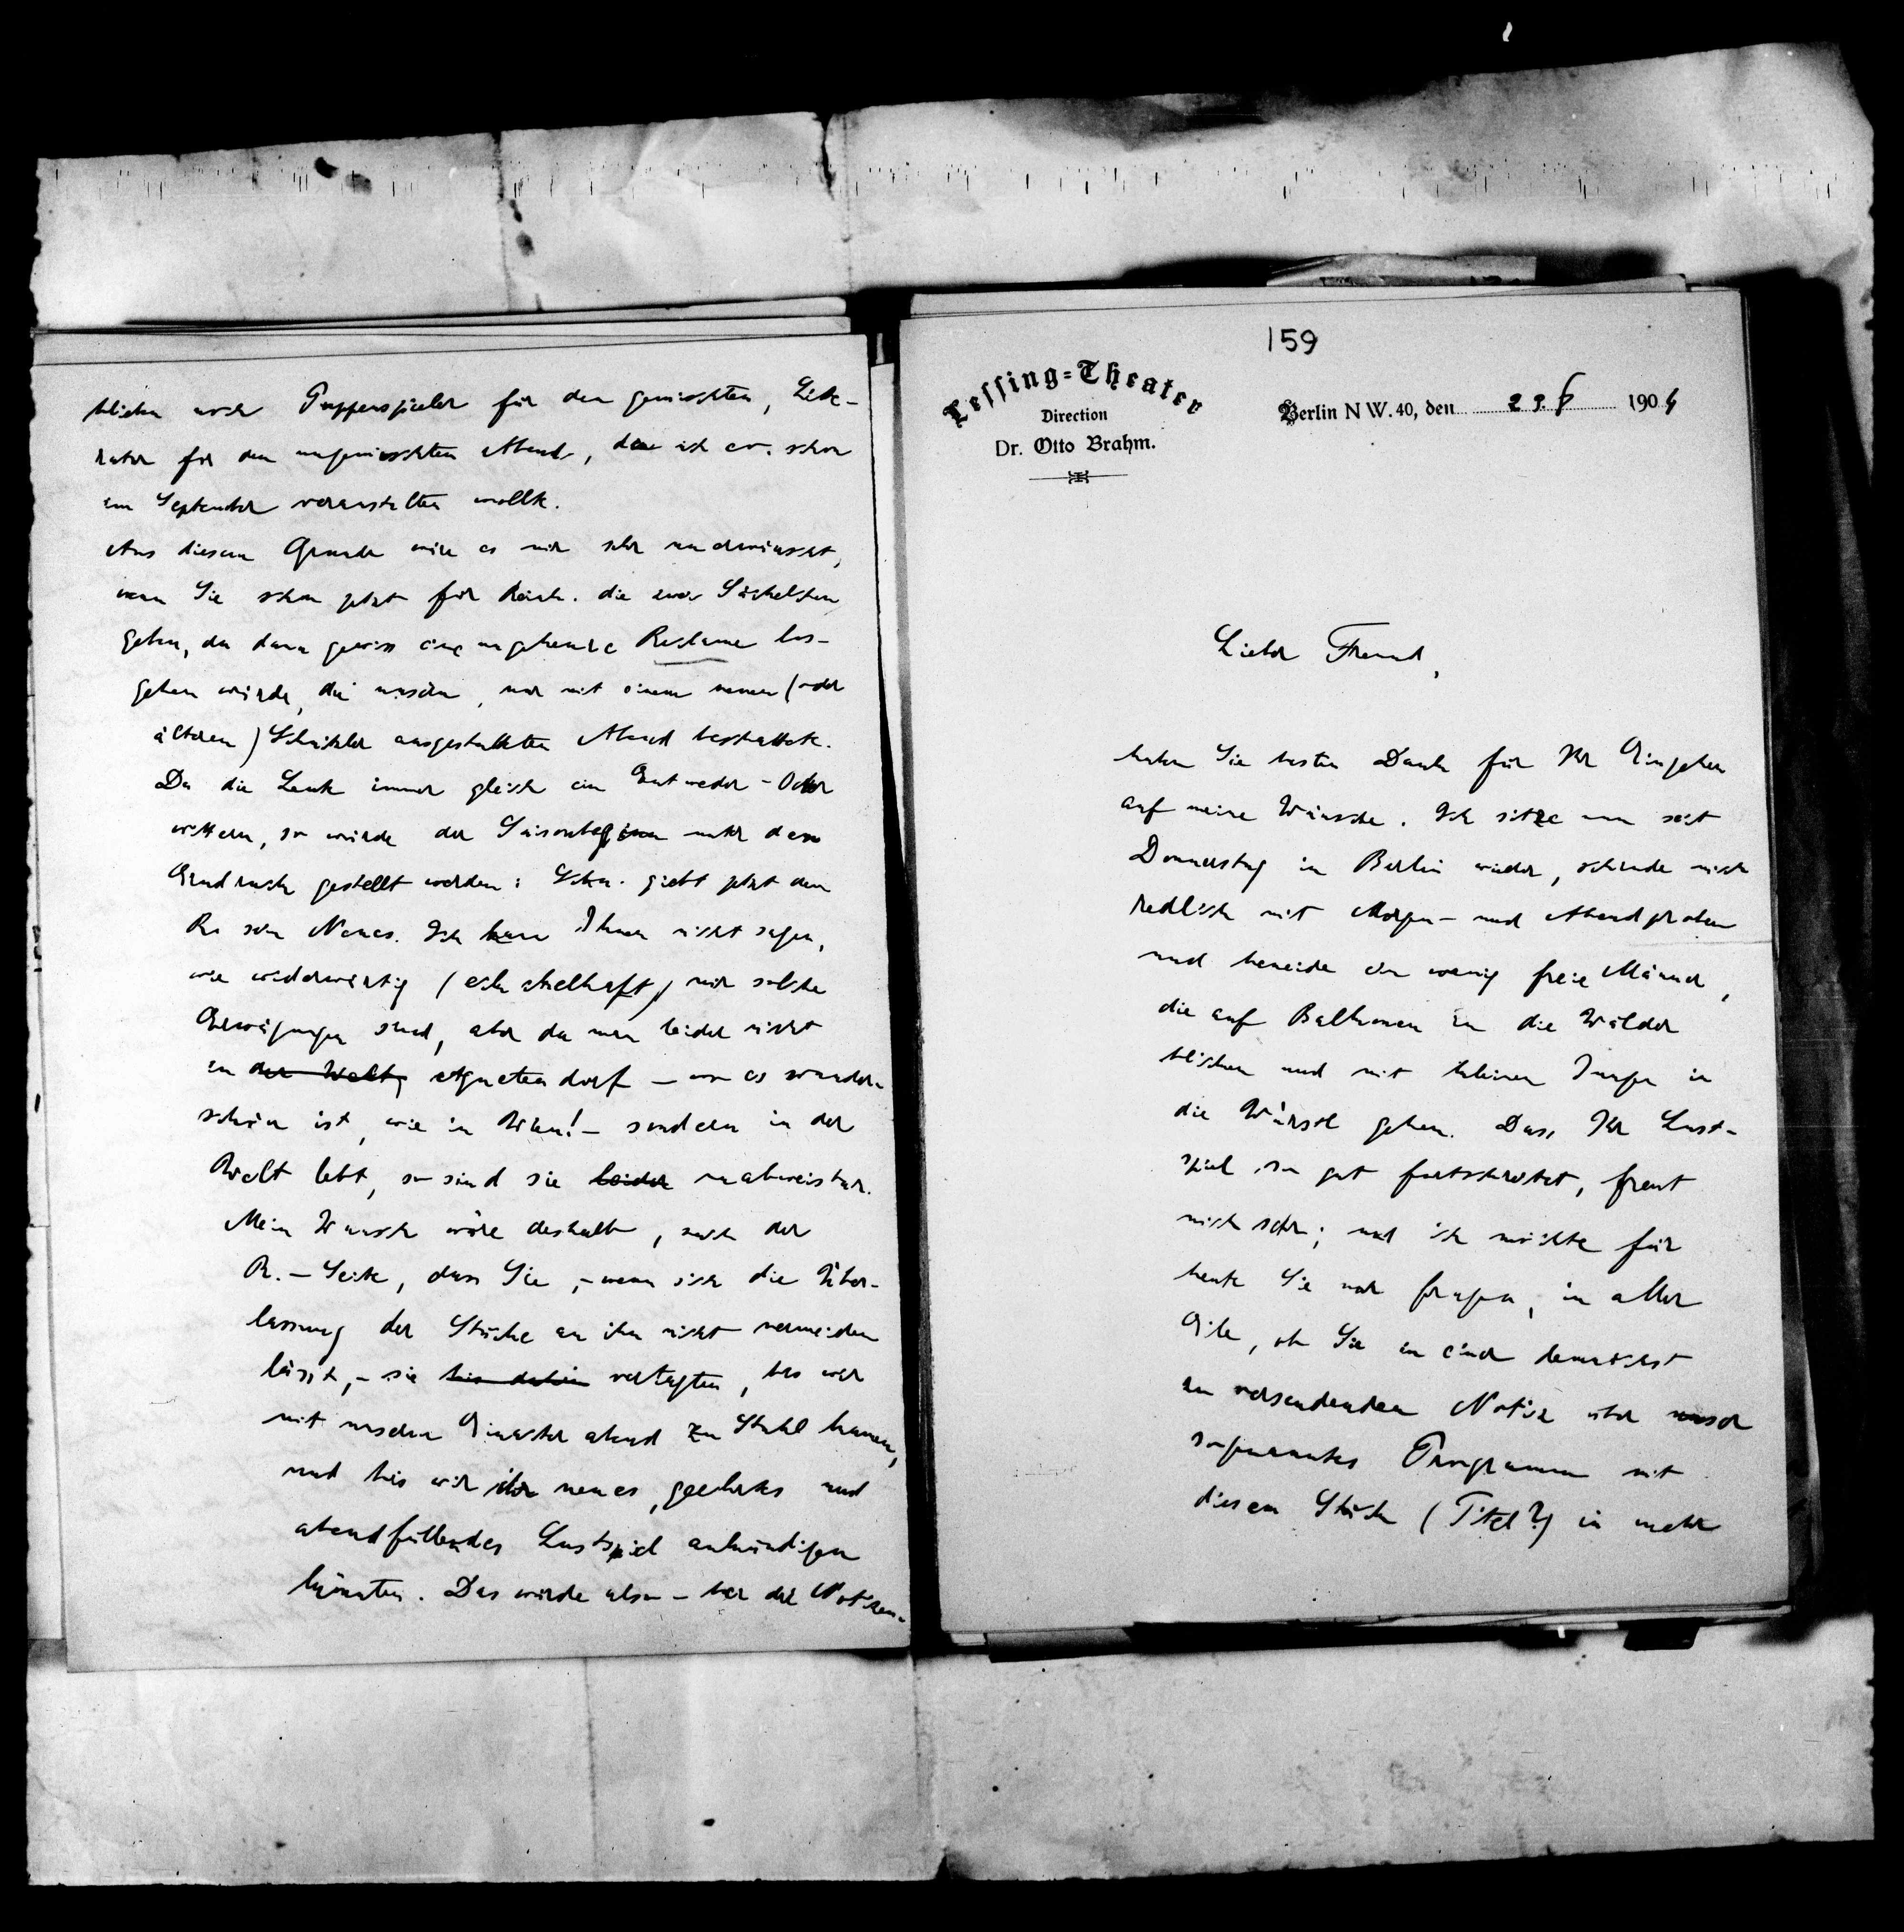 blieben noch Puppenspieler für den gemischten, Lite-
ratur für den ungemischten Abend, den ich ev. schon
im September veranstalten wollte.
Aus diesem Grunde wäre es mir sehr unerwünscht,
wenn Sie schon jetzt für Reinh. die zwei Sächelchen
geben, da dann gewiss eine ungeheure Reclame los-
gehen würde, die unsern, nur mit einem neuen (oder
älteren) Schnitzler ausgestatteten Abend beschattete.
Da die Leute immer gleich ein Entweder-Oder
wittern, so würde der Saisonbeginn unter den
Eindruck gestellt werden: Schn. giebt jetzt dem
R. sein Neues. Ich kann Ihnen nicht sagen,
wie widerwärtig (ekelhaft) mir solche
Erwägungen sind, aber da man leider nicht
in der Welt, Agnetendorf – wo es wunder-
schön ist, wie in Wien! – sondern in der
Welt lebt, so sind sie leider unabweisbar.
Mein Wunsch wäre deshalb, nach der
R.-Seite, dass Sie, – wenn sich die Über-
lassung der Stücke an ihn nicht vermeiden
lässt, – sie bis dahin vertagten, bis wir
mit unserm Einakterabend zu Stuhl kamen,
und bis wir Ihr neues, geehrtes und
abendfüllendes Lustspiel ankündigen
könnten. Das würde also – bei der Notizen-
159
Lessing-Theater
Direction
Dr. Otto Brahm.
Berlin NW. 40, den 29.6 1904
Lieber Freund,
haben Sie besten Dank für Ihr Eingehen
auf meine Wünsche. Ich sitze nun seit
Donnerstag in Berlin wieder, schinde mich
redlich mit Morgen- und Abendproben
und beneide ein wenig freie Männer,
die auf Balkonen in die Wälder
blicken und mit kleinen Jungen in
die Würstl gehen. Dass Ihr Lust-
spiel so gut fortschreitet, freut
mich sehr; und ich möchte für
heute Sie nur fragen, in aller
Eile, ob Sie in einer demnächst
zu versendenden Notiz über unser
sogenanntes Programm mit
diesem Stück (Titel?) in mehr